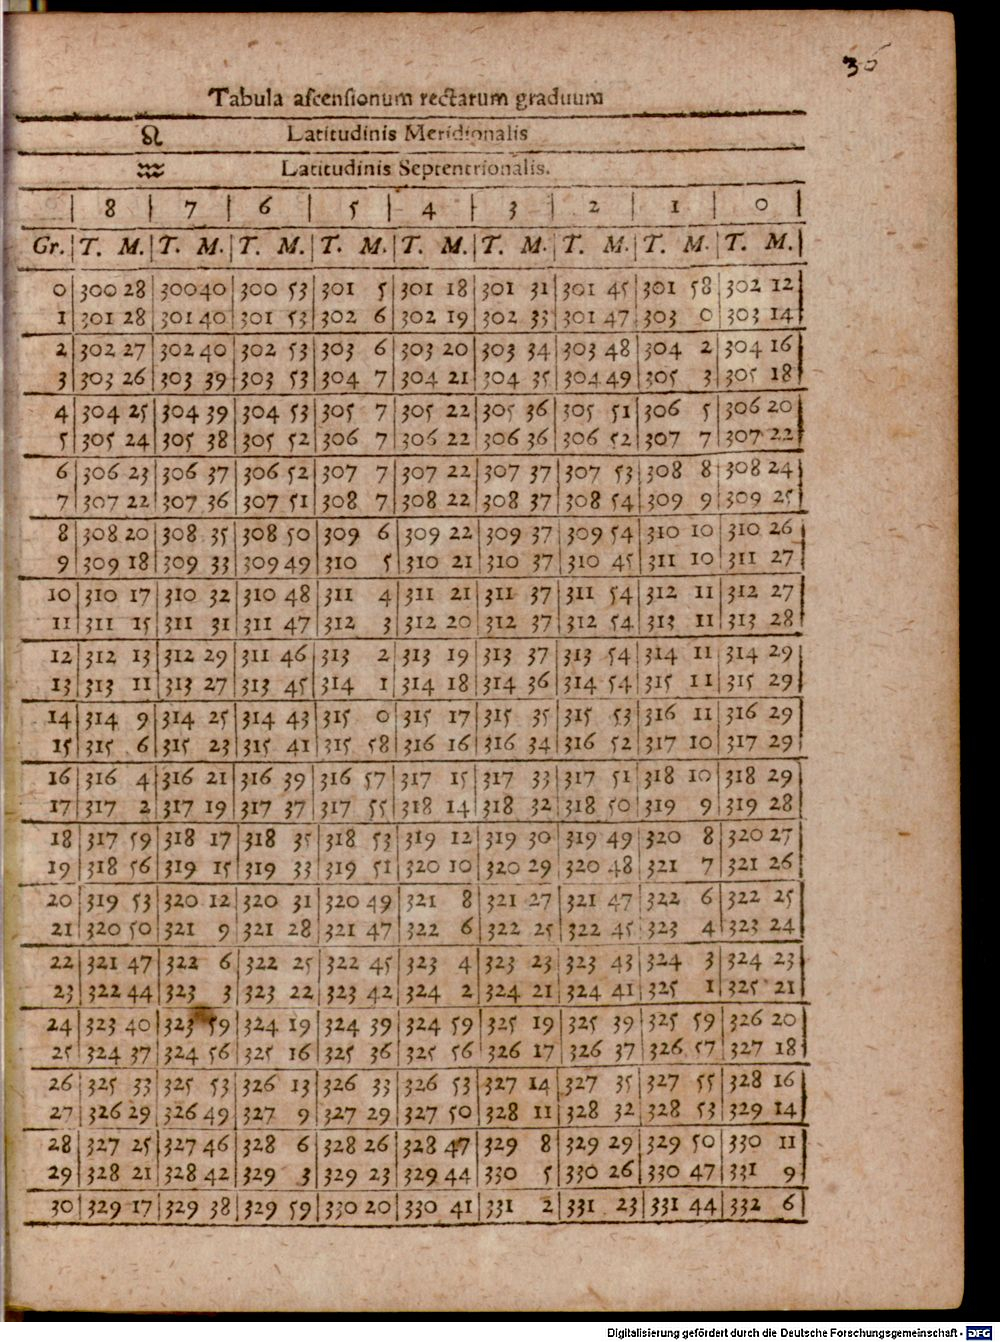 36
Tabula ascensionum rectarum graduum
♌ Latitudinis Meridionalis
♒ Latitudinis Septentrionalis.
8 7 6 5 4 3 2 1 0
Gr. T. M. T. M. T. M. T. M. T. M. T. M. T. M. T. M. T. M.
0 300 28 300 40 300 53 301 5 301 18 301 31 301 45 301 58 302 12
1 301 28 301 40 301 53 302 6 302 19 302 33 301 47 303 0 303 14
2 302 27 302 40 302 53 303 6 303 20 303 34 303 48 304 2 304 16
3 303 26 303 39 303 53 304 7 304 21 304 35 304 49 305 3 305 18
4 304 25 304 39 304 53 305 7 305 22 305 36 305 51 306 5 306 20
5 305 24 305 38 305 52 306 7 306 22 306 36 306 52 307 7 307 22
6 306 23 306 37 306 52 307 7 307 22 307 37 307 53 308 8 308 24
7 307 22 307 36 307 51 308 7 308 22 308 37 308 54 309 9 309 25
8 308 20 308 35 308 50 309 6 309 22 309 37 309 54 310 10 310 26
9 309 18 309 33 309 49 310 5 310 21 310 37 310 45 311 10 311 27
10 310 17 310 32 310 48 311 4 311 21 311 37 311 54 312 11 312 27
11 311 15 311 31 311 47 312 3 312 20 312 37 312 54 313 11 313 28
12 312 13 312 29 311 46 313 2 313 19 313 37 313 54 314 11 314 29
13 313 11 313 27 313 45 314 1 314 18 314 36 314 54 315 11 315 29
14 314 9 314 25 314 43 315 0 315 17 315 35 315 53 316 11 316 29
15 315 6 315 23 315 41 315 58 316 16 316 34 316 52 317 10 317 29
16 316 4 316 21 316 39 316 57 317 15 317 33 317 51 318 10 318 29
17 317 2 317 19 317 37 317 55 318 14 318 32 318 50 319 9 319 28
18 317 59 318 17 318 35 318 53 319 12 319 30 319 49 320 8 320 27
19 318 56 319 15 319 33 319 51 320 10 320 29 320 48 321 7 321 26
20 319 53 320 12 320 31 320 49 321 8 321 27 321 47 322 6 322 25
21 320 50 321 9 321 28 321 47 322 6 322 25 322 45 323 4 323 24
22 321 47 322 6 322 25 322 45 323 4 323 23 323 43 324 3 324 23
23 322 44 323 3 323 22 323 42 324 2 324 21 324 41 325 1 325 21
24 323 40 323 59 324 19 324 39 324 59 325 19 325 39 325 59 326 20
25 324 37 324 56 325 16 325 36 325 56 326 17 326 37 326 57 327 18
26 325 33 325 53 326 13 326 33 326 53 327 14 327 35 327 55 328 16
27 326 29 326 49 327 9 327 29 327 50 328 11 328 32 328 53 329 14
28 327 25 327 46 328 6 328 26 328 47 329 8 329 29 329 50 330 11
29 328 21 328 42 329 3 329 23 329 44 330 5 330 26 330 47 331 9
30 329 17 329 38 329 59 330 20 330 41 331 2 331 23 331 44 332 6
Digitalisierung gefördert durch die Deutsche Forschungsgemeinschaft - DFG